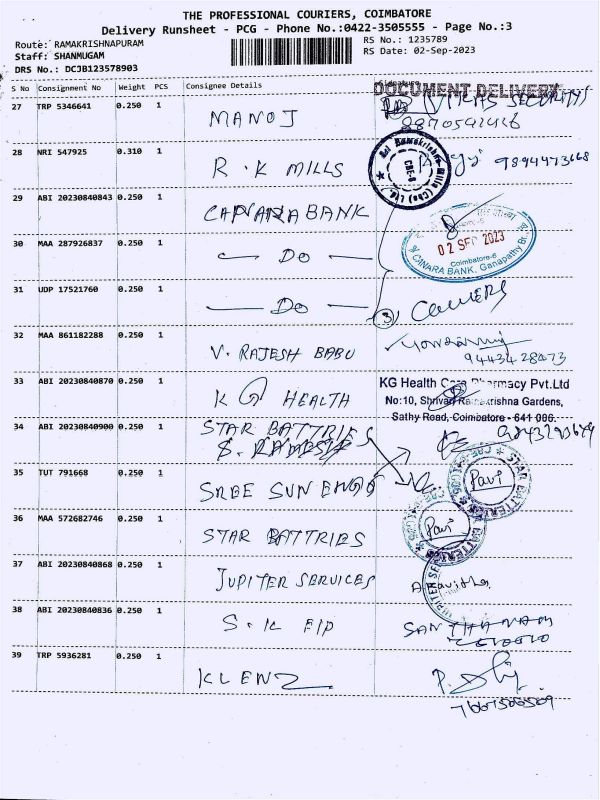 THE PROFESSIONAL COURIERS, COIMBATORE
Delivery Runsheet - PCG - Phone No.:0422-3505555 - Page No.:3
Route: RAMAKRISHNAPURAM
RS No.: 1235789
Staff: SHANMUGAM
RS Date: 02-Sep-2023
DRS No.: DCJB123578903
S No Consignment No Weight PCS Consignee Details Signature
DOCUMENT DELIVERY
27 TRP 5346641 0.250 1 MANOJ
28 NRI 547925 0.310 1 R.K MILLS 9894473668
29 ABI 20230840843 0.250 1 CANARA BANK
30 MAA 287926837 0.250 1 — DO —
02 SEP 2023
Coimbatore-6
CANARA BANK, Ganapathy Br.
31 UDP 17521760 0.250 1 — DO — 3) COVERS
32 MAA 861182288 0.250 1 V. RAJESH BABU
9443428073
33 ABI 20230840870 0.250 1 K G HEALTH
KG Health Care Pharmacy Pvt.Ltd
No:10, Shrivari Ramakrishna Gardens,
Sathy Road, Coimbatore - 641 006.
34 ABI 20230840900 0.250 1 STAR BATTRIES
35 TUT 791668 0.250 1 SREE SUN ENGG
STAR BATTERIES
Pavi
36 MAA 572682746 0.250 1 STAR BATTRIES
Pavi
37 ABI 20230840868 0.250 1 JUPITER SERVICES
38 ABI 20230840836 0.250 1 S.K EIP SANTHANAM
39 TRP 5936281 0.250 1 KLENZ